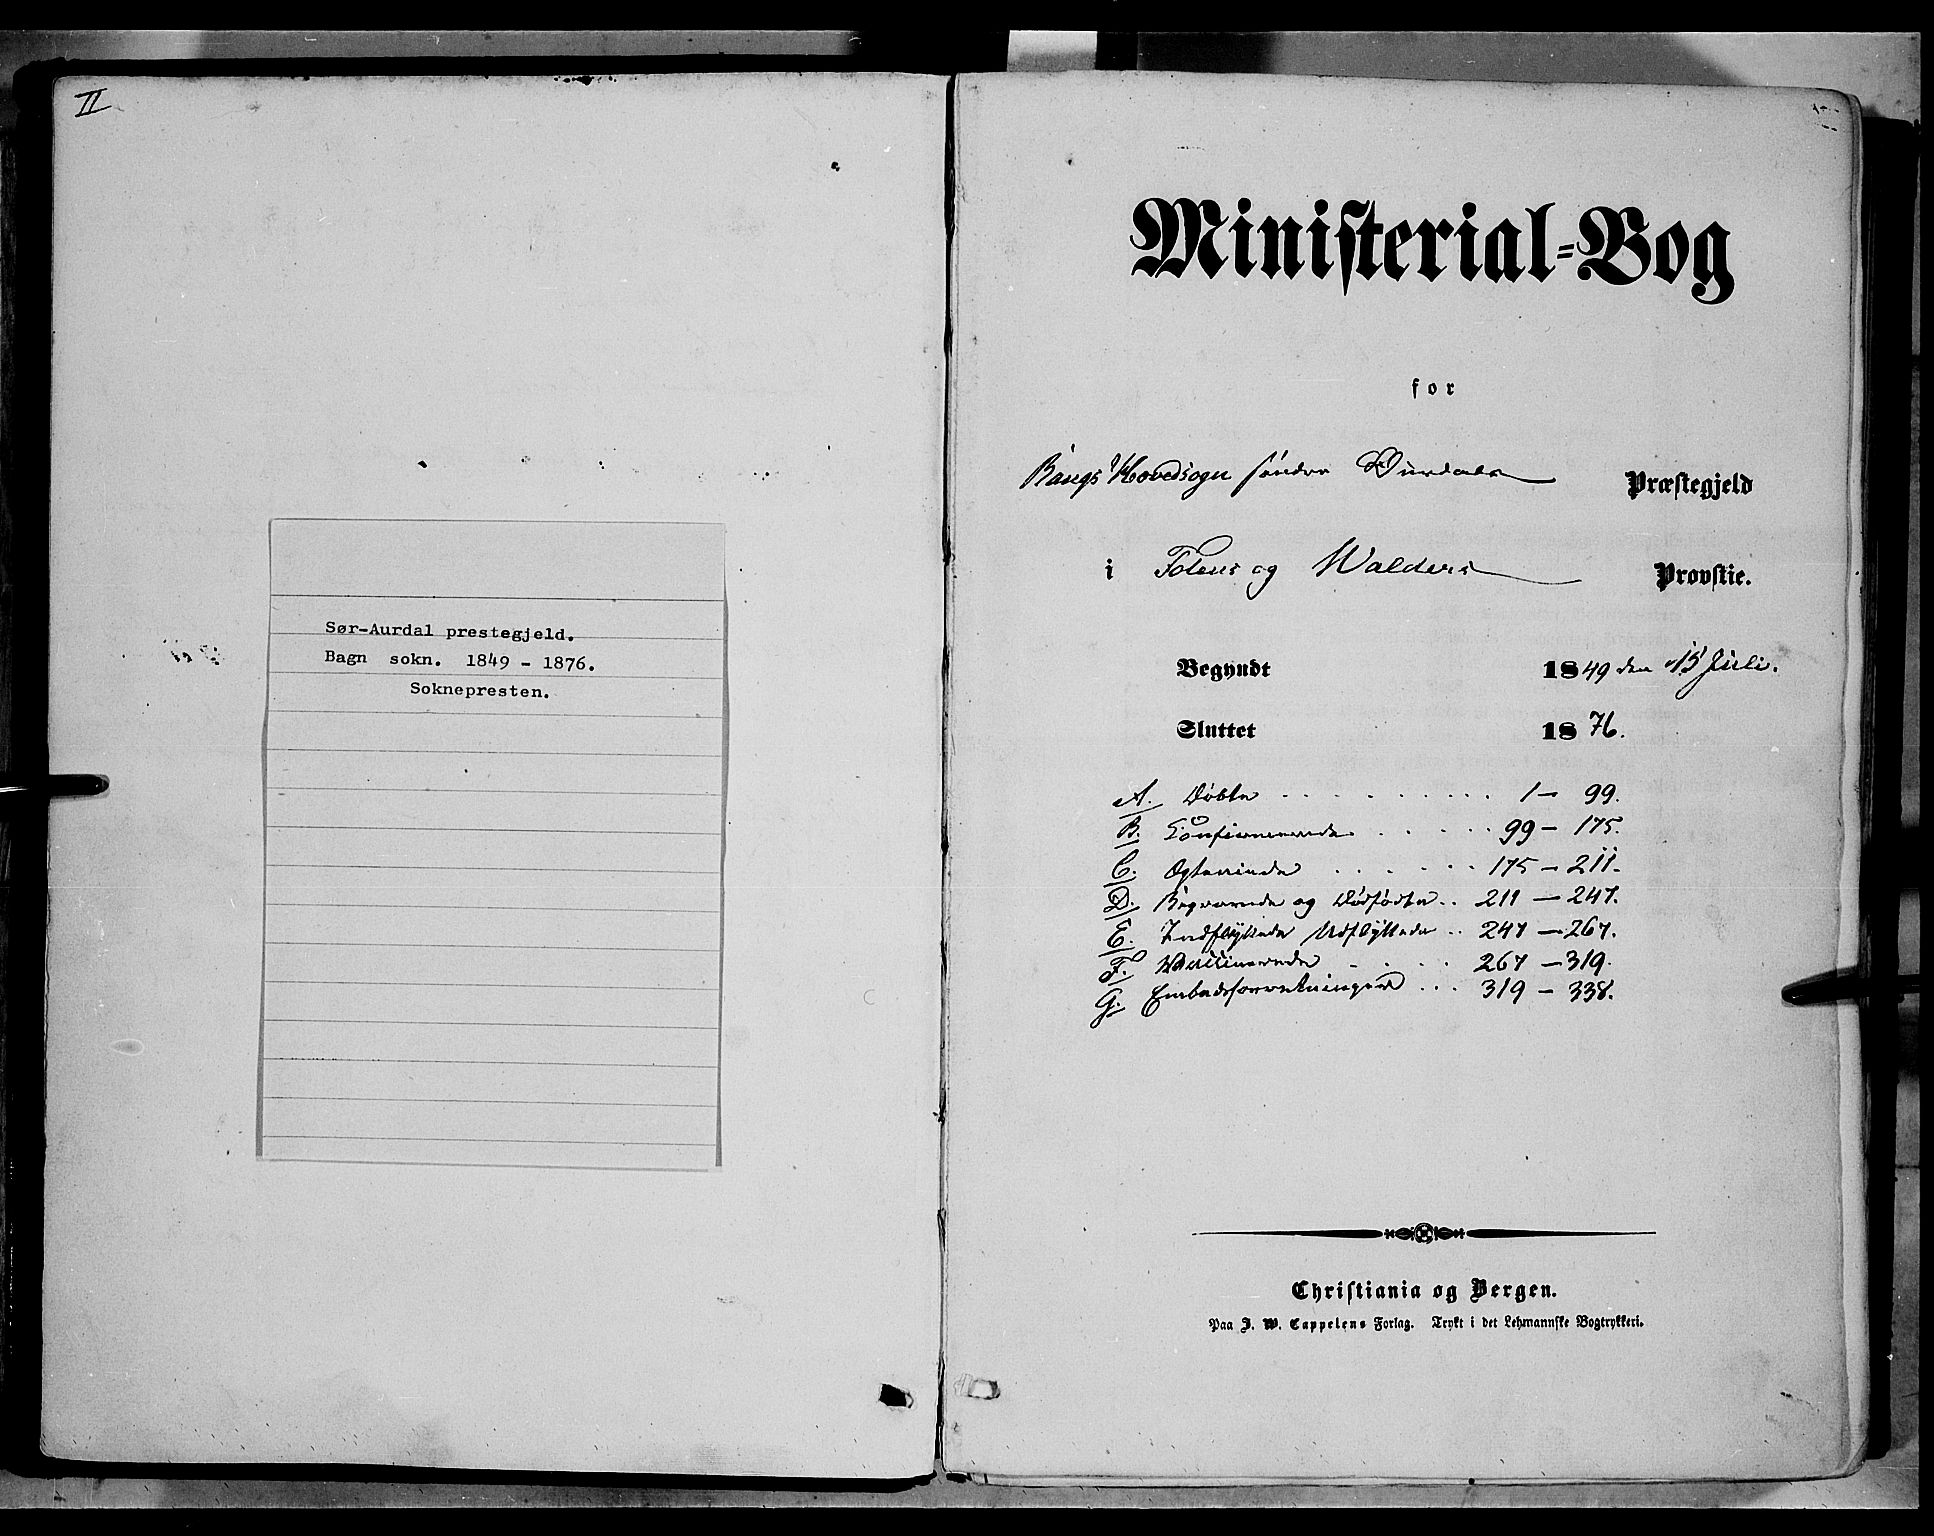 II
Sør-Aurdal prestegjeld.
Bagn sokn. 1849 - 1876.
Soknepresten.
Ministerial-Bog
for
Bangs Hovedsogn søndre Aurdals Præstegjeld
i Totens og Walders Provstie.
Begyndt 1849 den 15 Juli.
Sluttet 1876.
A. Døbte . . . . . . . . . . 1 - 99.
B. Confirmerede . . . . . 99 - 175.
C. Ægteviede . . . . . . 175 - 211.
D. Begravede og Dødfødte . . 211 - 247.
E. Indflyttede Udflyttede . . 247 - 267.
F. Vaccinerede . . . . 267 - 319.
G. Embedsforretninger . . . 319 - 338.
Christiania og Bergen.
Paa J. W. Cappelens Forlag. Trykt i det Lehmannske Bogtrykkeri.